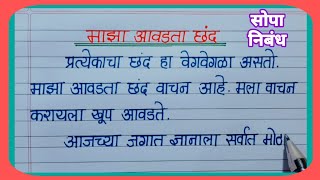 माझा आवडता छंद
सोपा
निबंध
प्रत्येकाचा छंद हा वेगवेगळा असतो.
माझा आवडता छंद वाचन आहे. मला वाचन
करायला खूप आवडते.
आजच्या जगात ज्ञानाला सर्वात मोठ